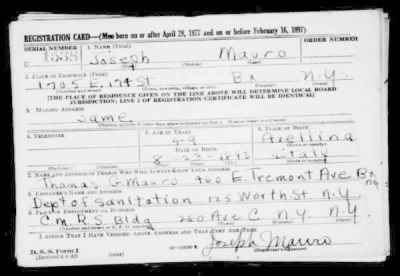 REGISTRATION CARD—(Men born on or after April 28, 1877 and on or before February 16, 1897)
SERIAL NUMBER
1. NAME (Print)
ORDER NUMBER
U 1538
Joseph Mauro
(First) (Middle) (Last)
2. PLACE OF RESIDENCE (Print)
1705 E. 174 St Bx N.Y.
(Number and street) (Town, township, village, or city) (County) (State)
[THE PLACE OF RESIDENCE GIVEN ON THE LINE ABOVE WILL DETERMINE LOCAL BOARD
JURISDICTION; LINE 2 OF REGISTRATION CERTIFICATE WILL BE IDENTICAL]
3. MAILING ADDRESS
Same
[Mailing address if other than place indicated on line 2. If same insert word same]
4. TELEPHONE
5. AGE IN YEARS
49
DATE OF BIRTH
8 23 1892
(Mo.) (Day) (Yr.)
6. PLACE OF BIRTH
Avellina
(Town or county)
Italy
(State or country)
7. NAME AND ADDRESS OF PERSON WHO WILL ALWAYS KNOW YOUR ADDRESS
Thomas G. Mauro 460 E. Tremont Ave Bx N.Y.
8. EMPLOYER'S NAME AND ADDRESS
Dept of Sanitation 125 Worth St. N.Y.
9. PLACE OF EMPLOYMENT OR BUSINESS
280 Ave C N.Y. N.Y.
(Number and street or R. F. D. number) (Town) (County) (State)
I AFFIRM THAT I HAVE VERIFIED ABOVE ANSWERS AND THAT THEY ARE TRUE.
D. S. S. Form 1
(Revised 4-1-42) (over)
Joseph Mauro